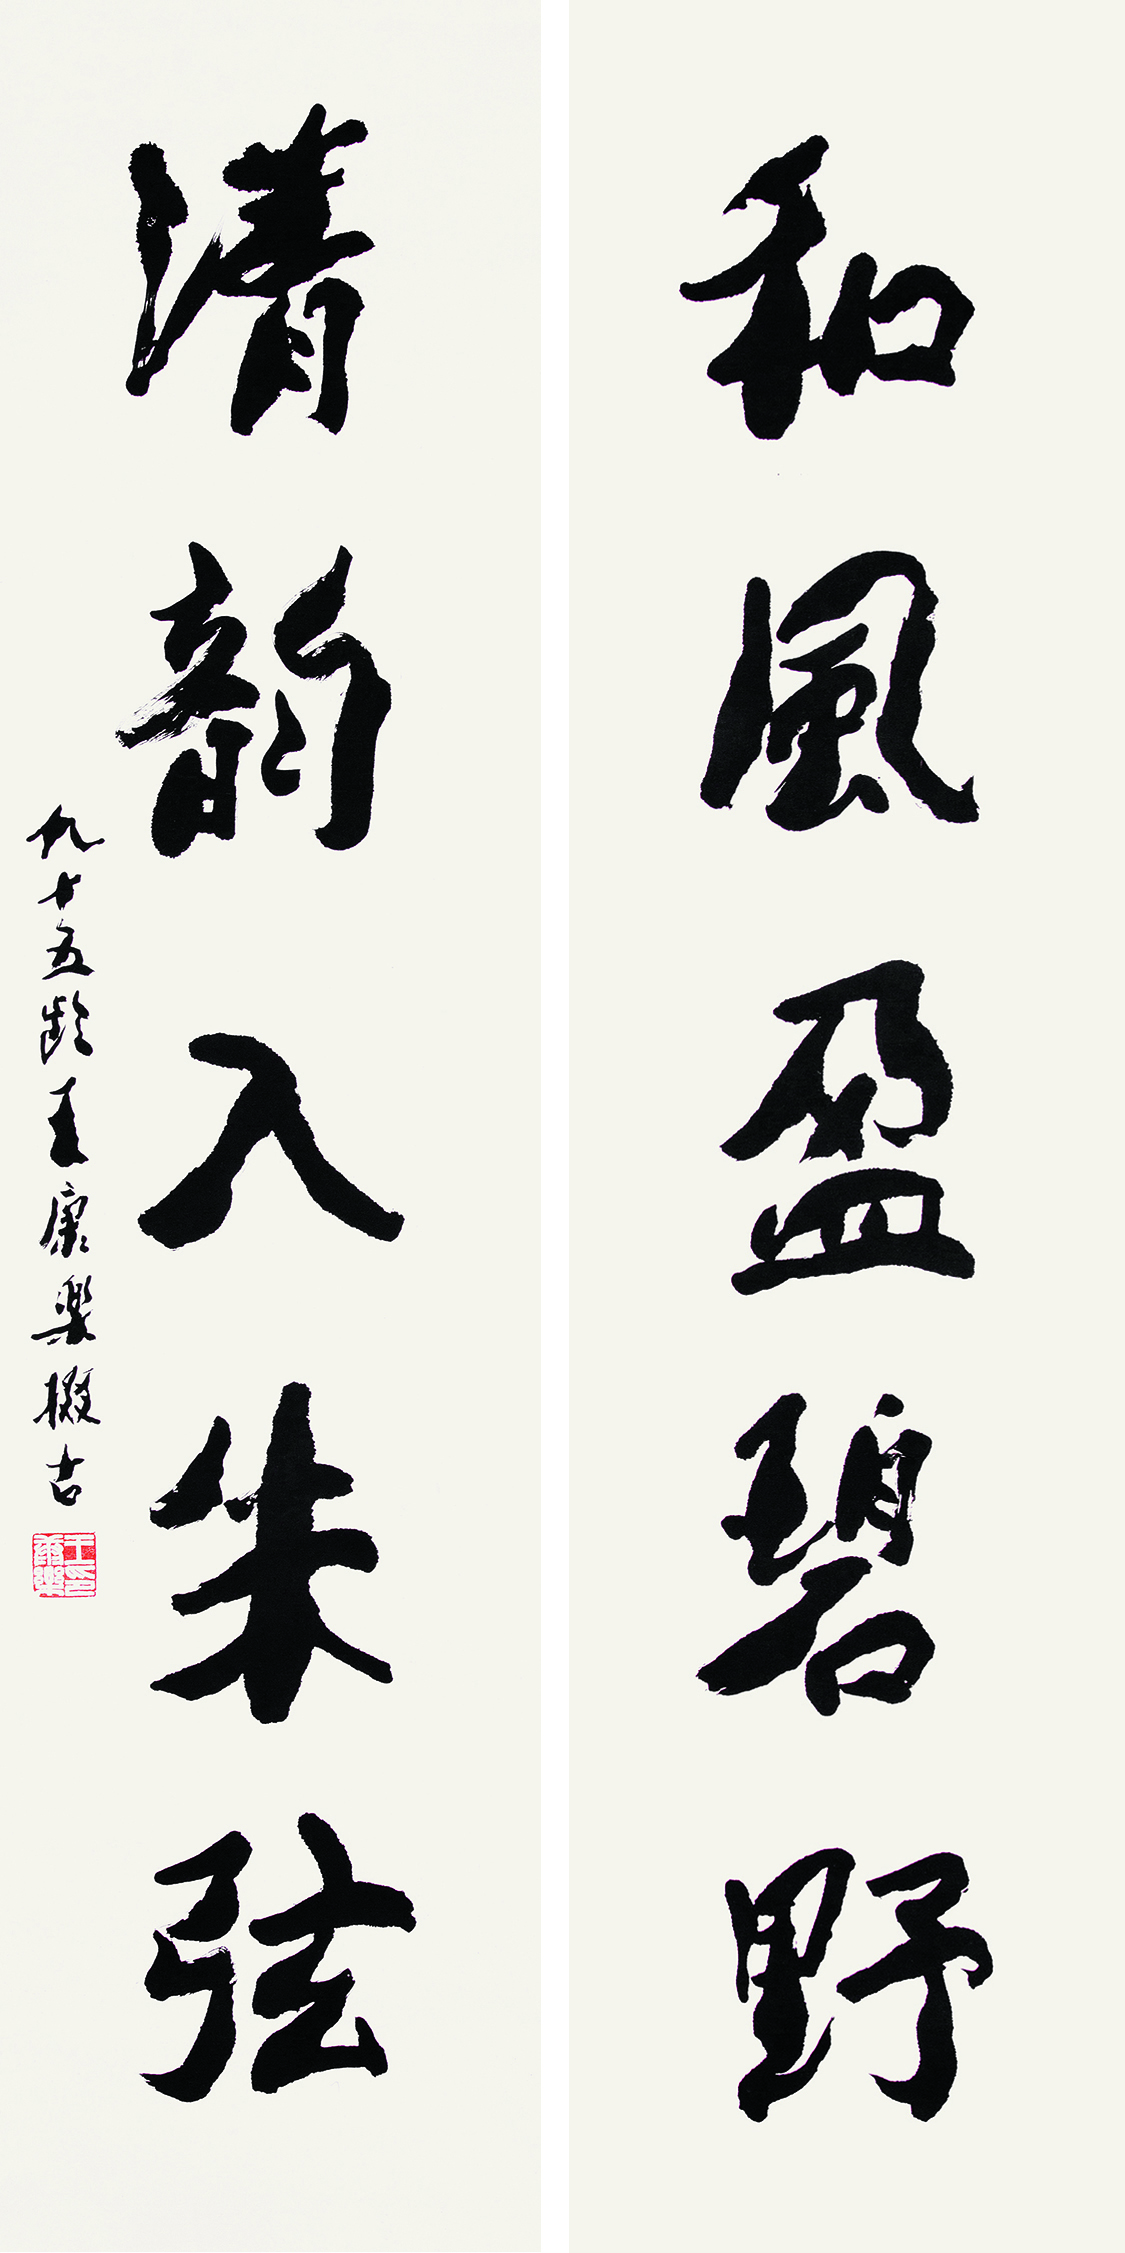 和風盈碧野
清韵入朱弦
九十五齡王康樂掇古
王康樂印